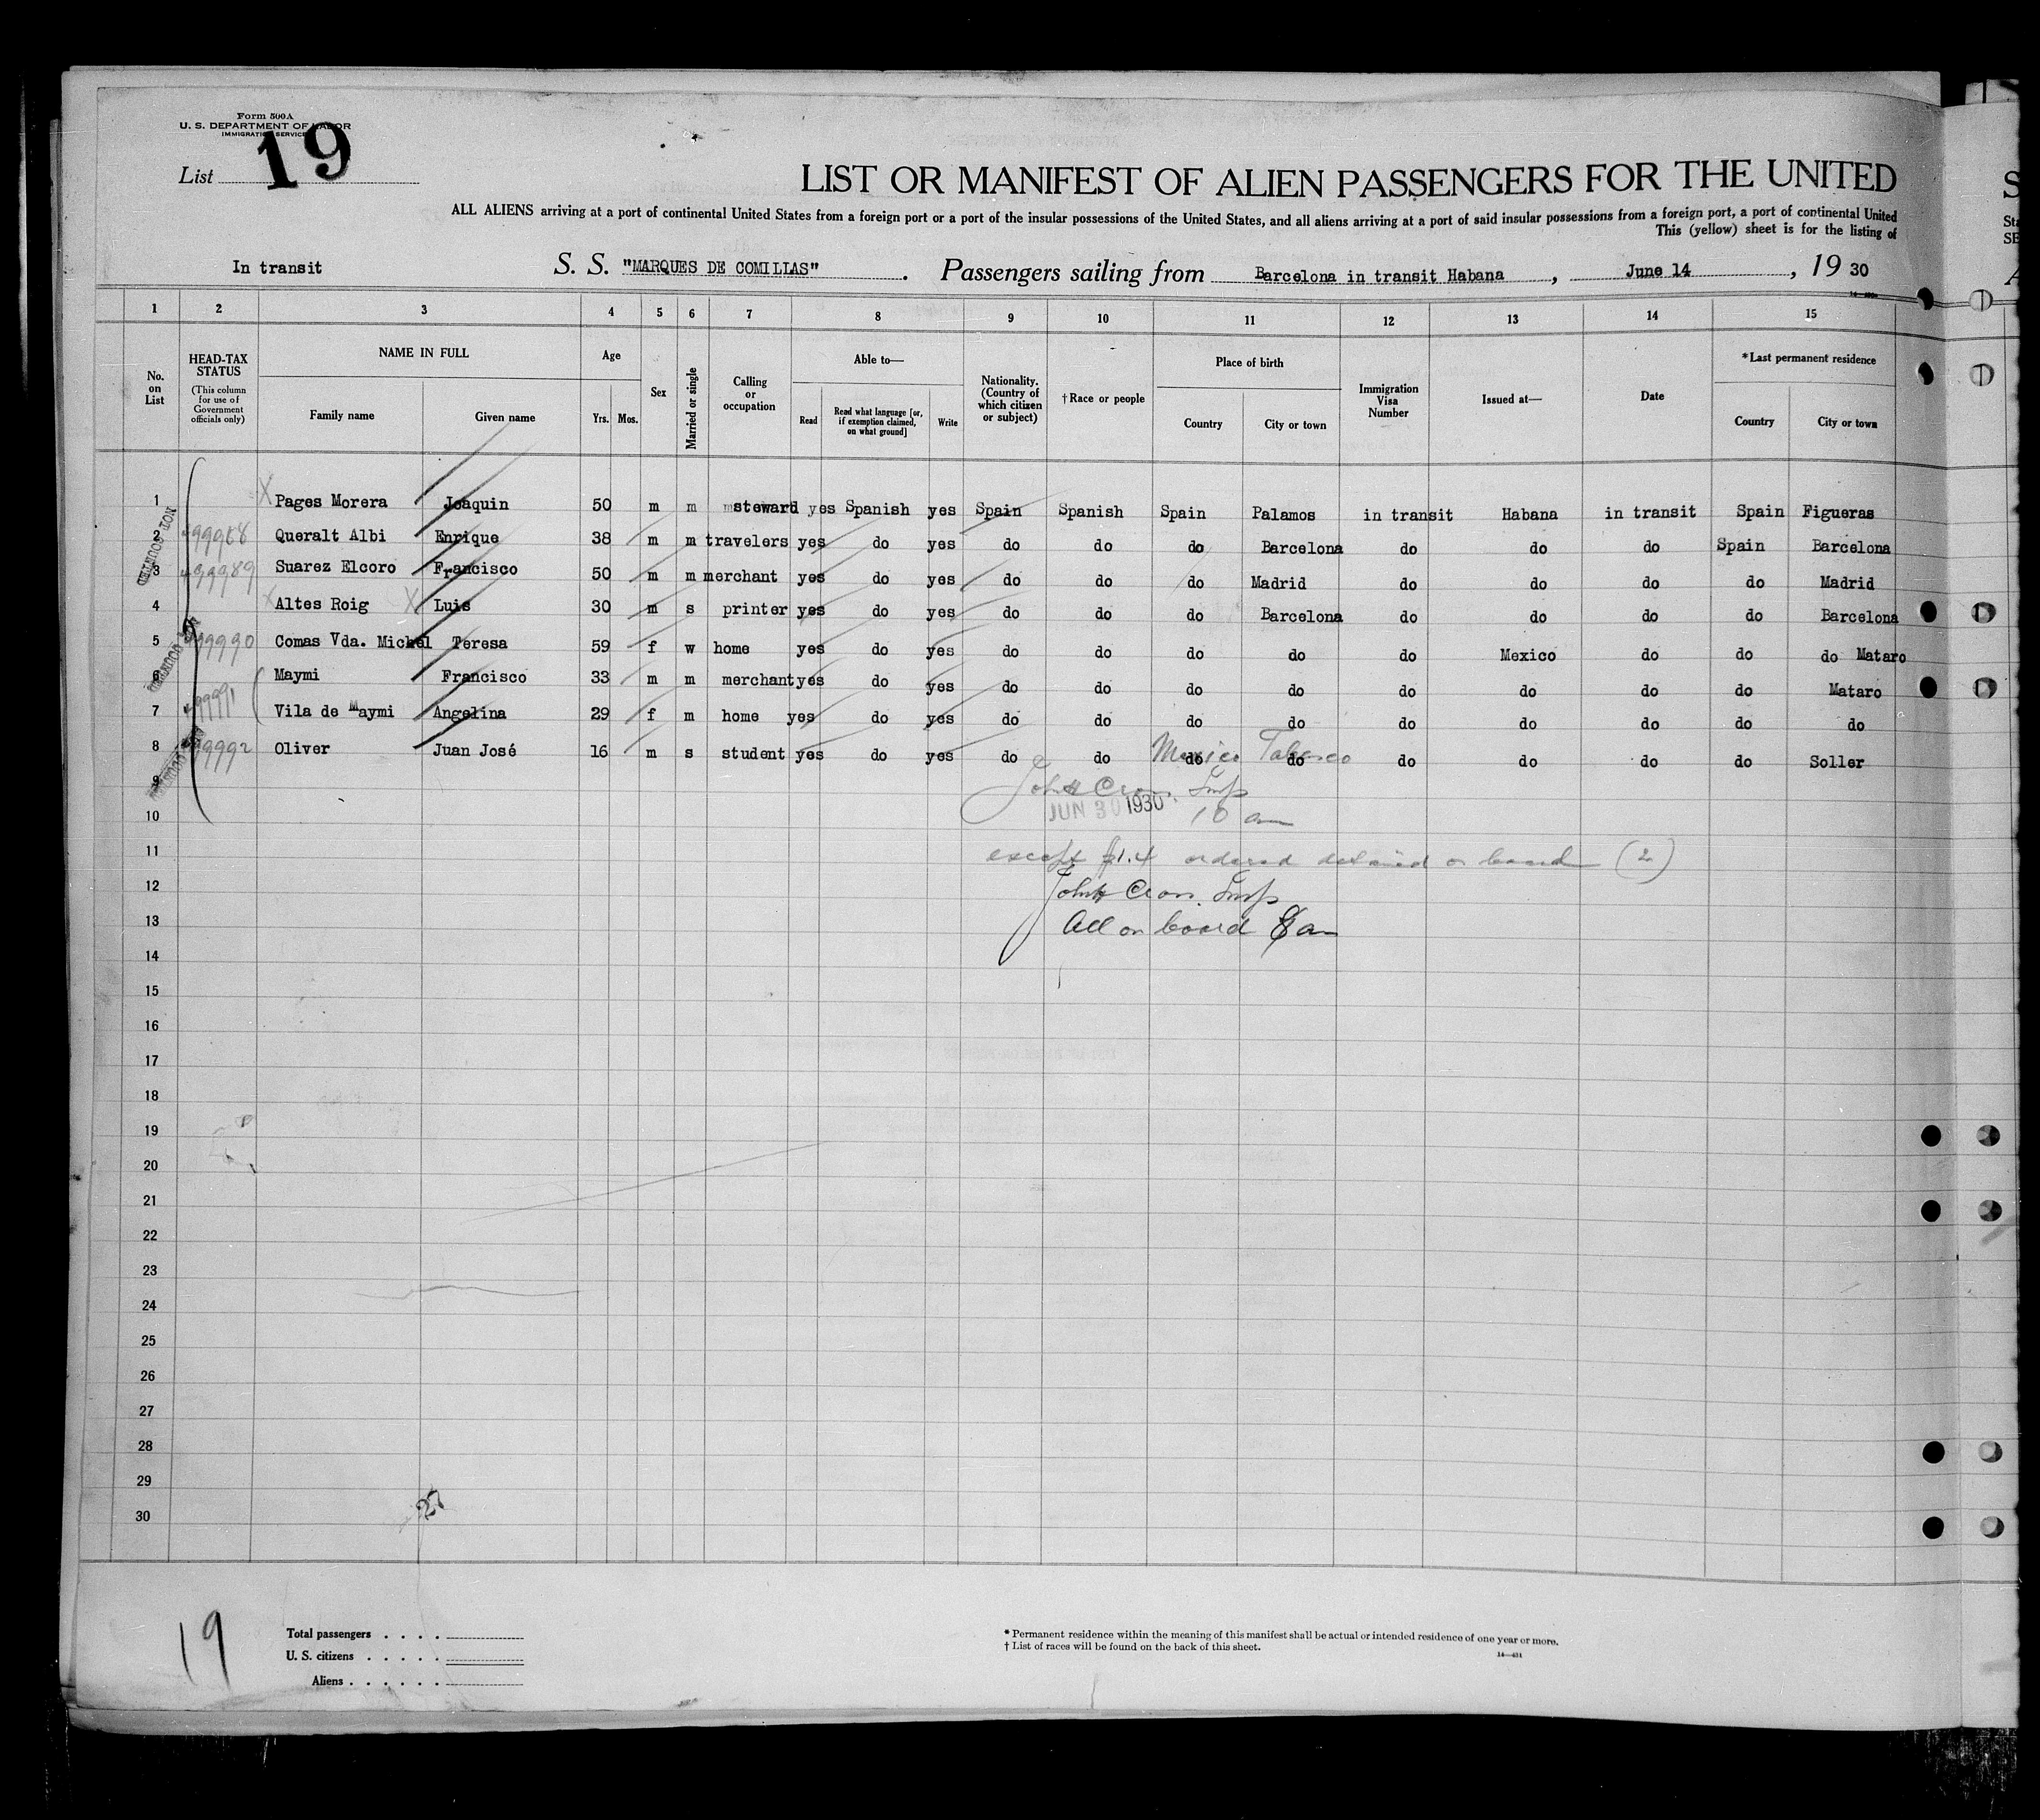 Form 500A
U. S. DEPARTMENT OF LABOR
IMMIGRATION SERVICE
List 19
LIST OR MANIFEST OF ALIEN PASSENGERS FOR THE UNITED
ALL ALIENS arriving at a port of continental United States from a foreign port or a port of the insular possessions of the United States, and all aliens arriving at a port of said insular possessions from a foreign port, a port of continental United
This (yellow) sheet is for the listing of
In transit S. S. "MARQUES DE COMILLAS". Passengers sailing from Barcelona in transit Habana, June 14, 19 30
1 2 3 4 5 6 7 8 9 10 11 12 13 14 15
No. on List
HEAD-TAX STATUS (This column for use of Government officials only)
NAME IN FULL Family name Given name
Age Yrs. Mos.
Sex
Married or single
Calling or occupation
Able to— Read Read what language [or, if exemption claimed, on what ground] Write
Nationality. (Country of which citizen or subject)
†Race or people
Place of birth Country City or town
Immigration Visa Number
Issued at—
Date
*Last permanent residence Country City or town
1 X Pages Morera Joaquin 50 m m steward yes Spanish yes Spain Spanish Spain Palamos in transit Habana in transit Spain Figueras
2 Queralt Albi Enrique 38 m m travelers yes do yes do do do Barcelona do do do Spain Barcelona
3 99989 Suarez Elcoro Francisco 50 m m merchant yes do yes do do do Madrid do do do do Madrid
4 X Altes Roig X Luis 30 m s printer yes do yes do do do Barcelona do do do do Barcelona
5 99990 Comas Vda. Michel Teresa 59 f w home yes do yes do do do do do Mexico do do do Mataro
6 Maymi Francisco 33 m m merchant yes do yes do do do do do do do do Mataro
7 99991 Vila de Maymi Angelina 29 f m home yes do yes do do do do do do do do do
8 99992 Oliver Juan José 16 m s student yes do yes do do do do do do do do Soller
Mexico Tabasco
9
JUN 30 1930 10 am
10
11 except ordered detained on board (2)
12
13 All on board 8 am
14
15
16
17
18
19
20
21
22
23
24
25
26
27
28
29
30
27
19
Total passengers . . . .
U. S. citizens . . . . .
Aliens . . . . . .
* Permanent residence within the meaning of this manifest shall be actual or intended residence of one year or more.
† List of races will be found on the back of this sheet.
14—431